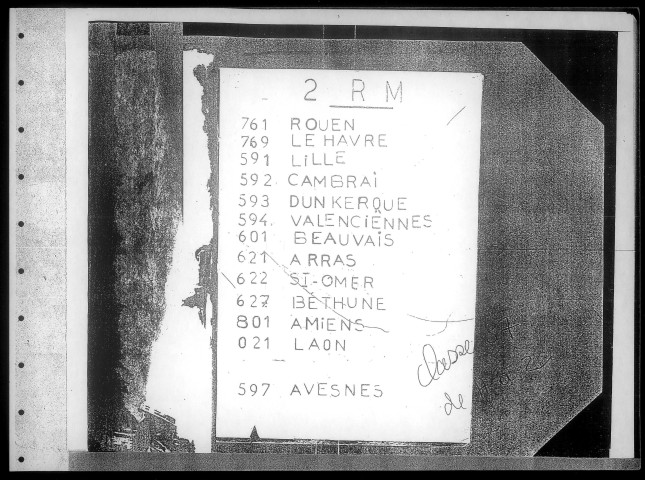 2 RM
761 ROUEN
769 LE HAVRE
591 LiLLE
592 CAMBRAi
593 DUNKERQUE
594 VALENCiENNES
601 BEAUVAiS
621 ARRAS
622 ST-OMER
627 BETHUNE
801 AMiENS
021 LAON
597 AVESNES
classe
de